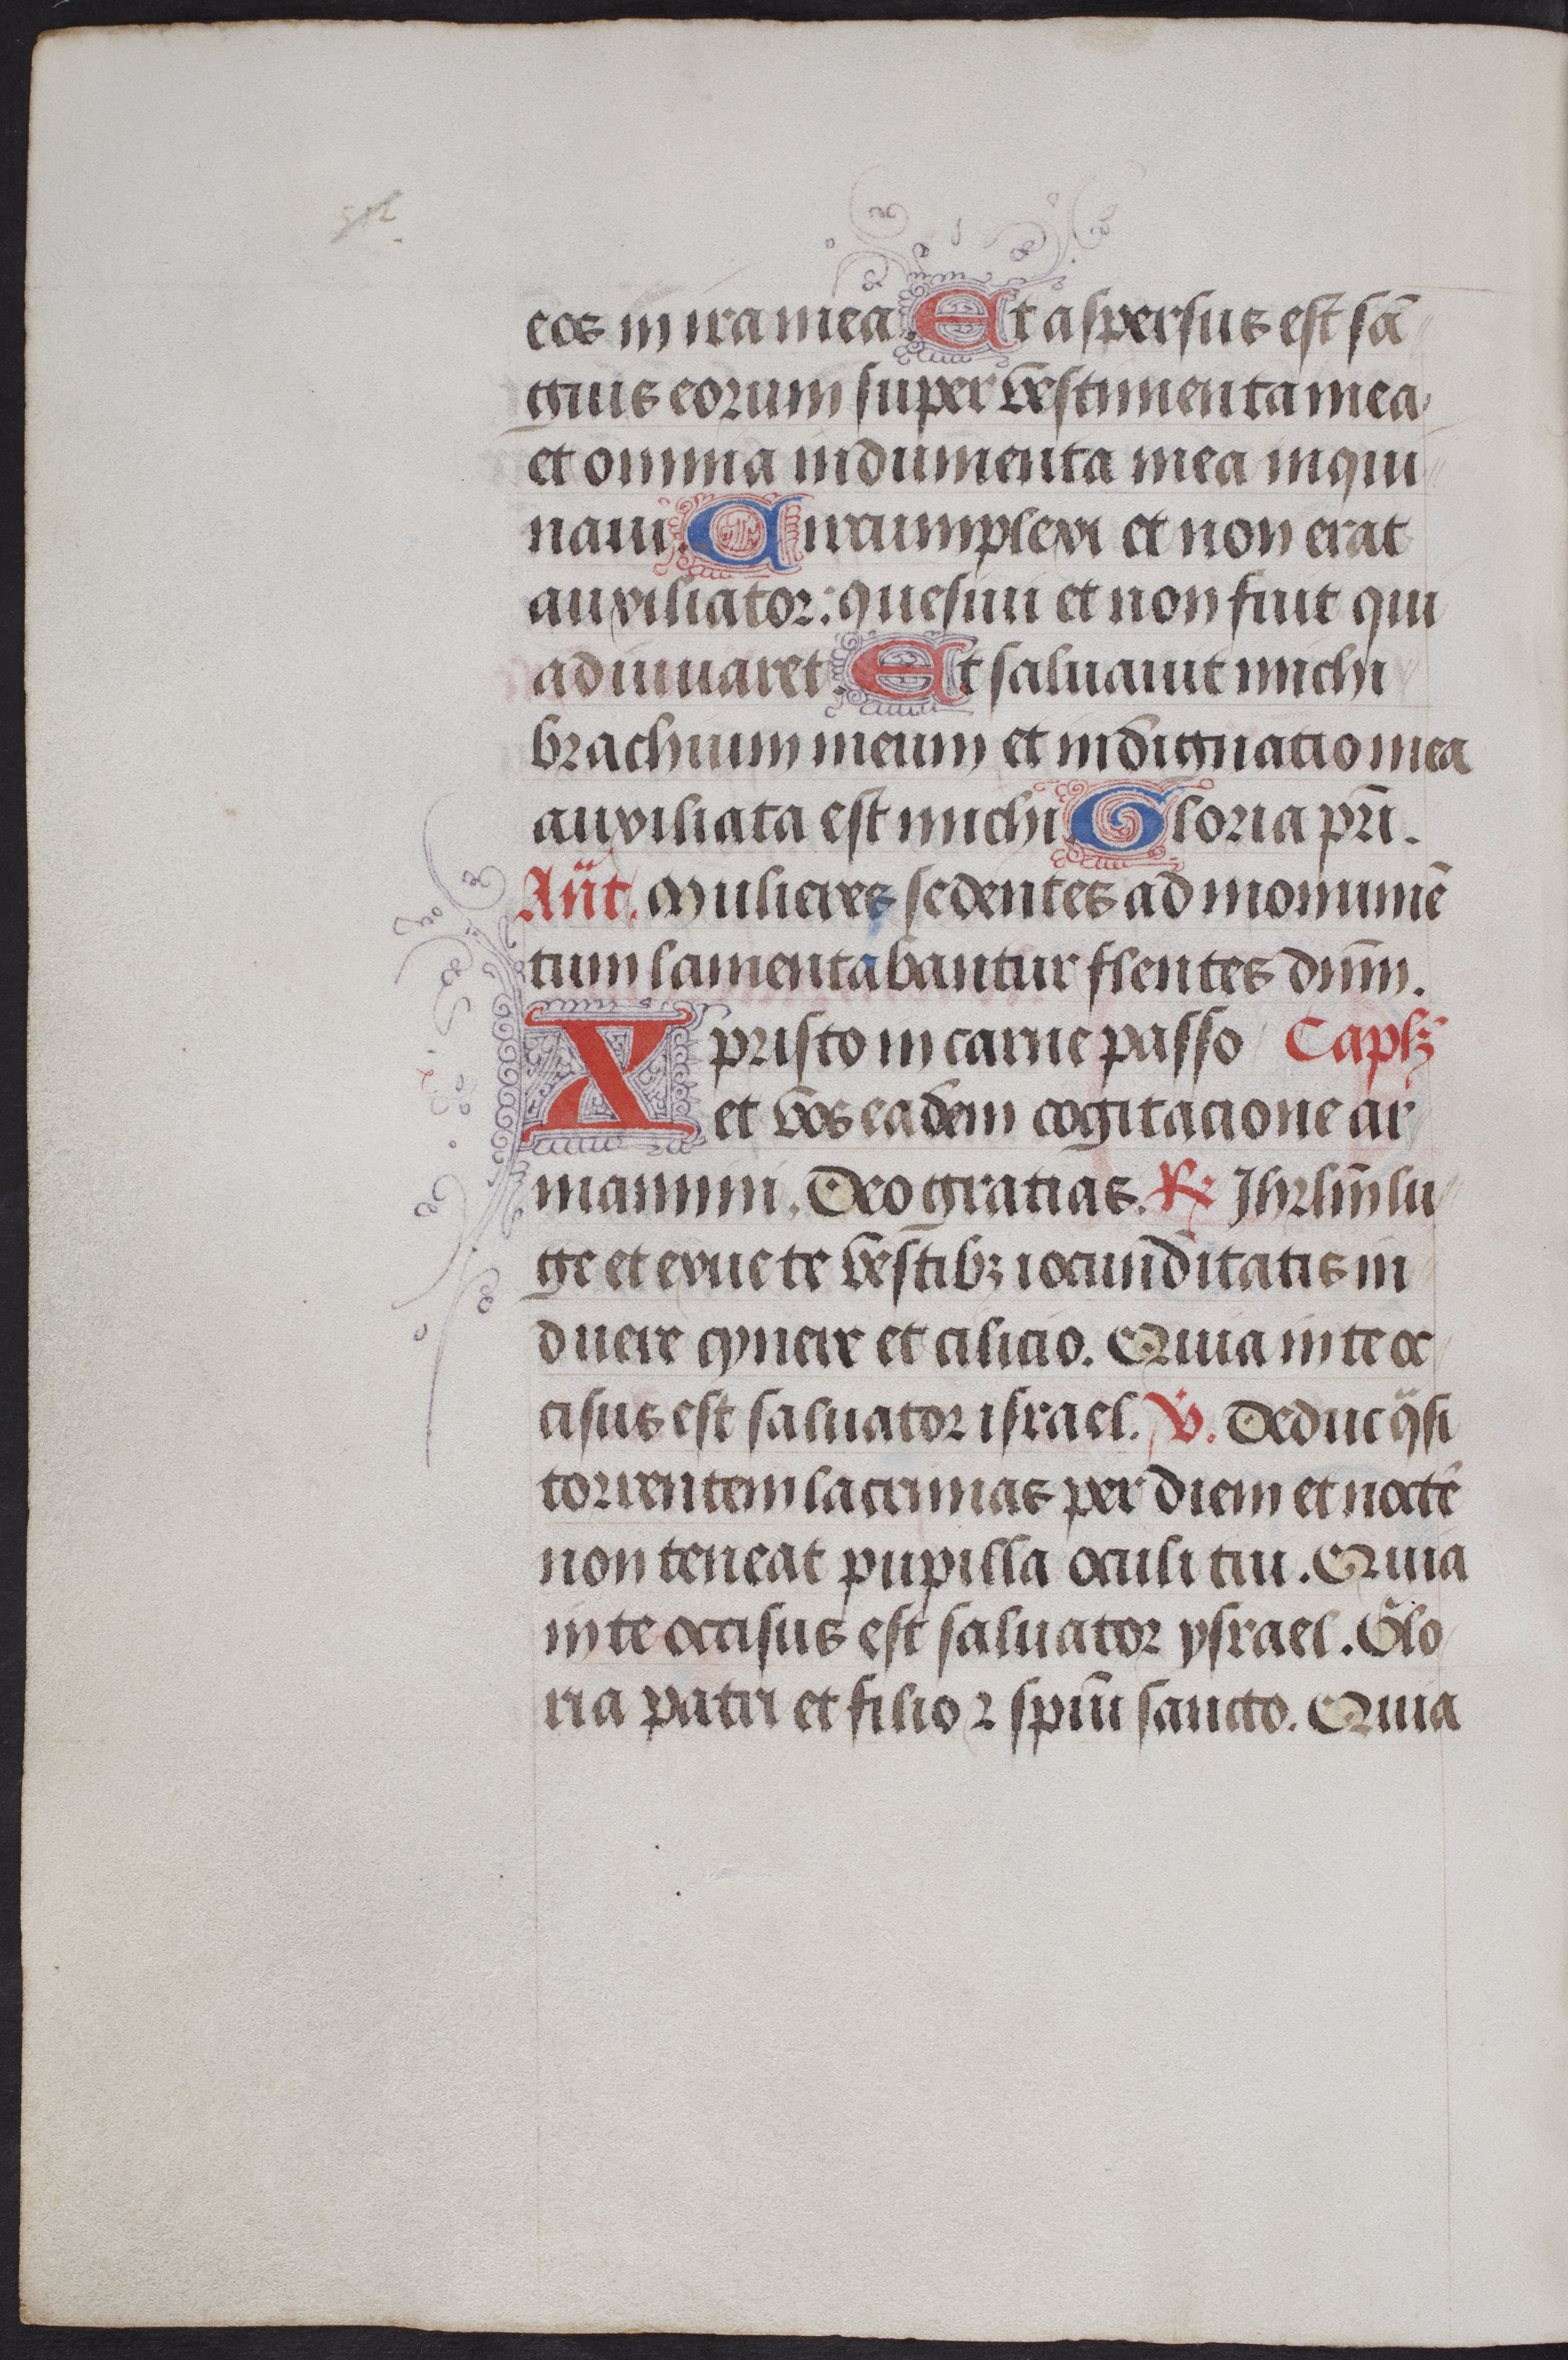 eos in ira mea. Et aspersus est sā
guis eorum super vestimenta mea
et omnia indumenta mea inqui
naui. Circumplexi et non erat
auxiliator: quesiui et non fuit qui
adiuuaret. Et saluauit michi
brachium meum et indignatio mea
auxiliata est michi. Gloria pr̄i.
Añt. Mulieres sedentes ad monumē
tum lamentabantur flentes dn̄m.
Xpristo in carne passo Caplꝫ
et vos eadem cogitacione ar
mamini. Deo gratias. ℞ Jhrlm̄ lu
ge et exue te vestibꝫ iocunditatis in
duere cynere et cilicio. Quia in te oc
cisus est saluator israel. ℣. Deduc q̈si
torrentem lacrimas per diem et noctē
non teneat pupilla oculi tui. Quia
in te occisus est saluator ysrael. Glo
ria patri et filio ⁊ spiūi sancto. Quia